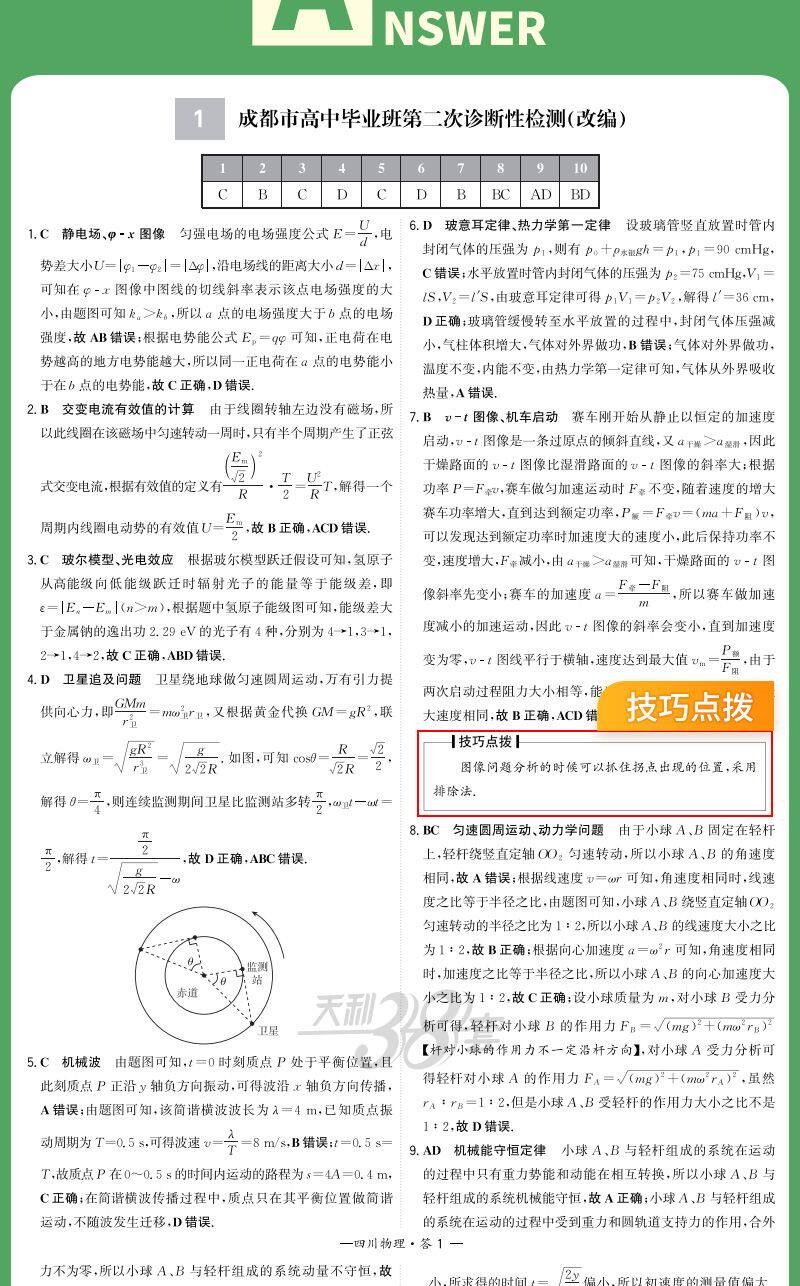 A
NSWER
1 成都市高中毕业班第二次诊断性检测(改编)
1 2 3 4 5 6 7 8 9 10
C B C D C D B BC AD BD
1. C 静电场、φ-x 图像 匀强电场的电场强度公式 E=U/d,电
势差大小U=|φ₁-φ₂|=|Δφ|,沿电场线的距离大小 d=|Δx|,
可知在 φ-x 图像中图线的切线斜率表示该点电场强度的大
小,由题图可知 kₐ>k_b,所以 a 点的电场强度大于 b 点的电场
强度,故 AB 错误;根据电势能公式 Eₚ=qφ 可知,正电荷在电
势越高的地方电势能越大,所以同一正电荷在 a 点的电势能小
于在 b 点的电势能,故 C 正确,D 错误.
2. B 交变电流有效值的计算 由于线圈转轴左边没有磁场,所
以此线圈在该磁场中匀速转动一周时,只有半个周期产生了正弦
式交变电流,根据有效值的定义有(Eₘ/√2)²/R·T/2=U²/R T,解得一个
周期内线圈电动势的有效值 U=Eₘ/2,故 B 正确,ACD 错误.
3. C 玻尔模型、光电效应 根据玻尔模型跃迁假设可知,氢原子
从高能级向低能级跃迁时辐射光子的能量等于能级差,即
ε=|Eₙ-Eₘ|(n>m),根据题中氢原子能级图可知,能级差大
于金属钠的逸出功 2.29 eV 的光子有 4 种,分别为 4→1,3→1,
2→1,4→2,故 C 正确,ABD 错误.
4. D 卫星追及问题 卫星绕地球做匀速圆周运动,万有引力提
供向心力,即GMm/r卫²=mω卫²r卫,又根据黄金代换 GM=gR²,联
立解得 ω卫=√(gR²/r卫³)=√(g/(2√2R)). 如图,可知 cosθ=R/(√2R)=√2/2,
解得 θ=π/4,则连续监测期间卫星比监测站多转π/2,ω卫t-ωt=
π/2,解得 t=(π/2)/(√(g/(2√2R))-ω),故 D 正确,ABC 错误.
θ
θ
监测
站
赤道
卫星
5. C 机械波 由题图可知,t=0 时刻质点 P 处于平衡位置,且
此刻质点 P 正沿 y 轴负方向振动,可得波沿 x 轴负方向传播,
A 错误;由题图可知,该简谐横波波长为 λ=4 m,已知质点振
动周期为 T=0.5 s,可得波速 v=λ/T=8 m/s,B 错误;t=0.5 s=
T,故质点 P 在 0～0.5 s 的时间内运动的路程为 s=4A=0.4 m,
C 正确;在简谐横波传播过程中,质点只在其平衡位置做简谐
运动,不随波发生迁移,D 错误.
6. D 玻意耳定律、热力学第一定律 设玻璃管竖直放置时管内
封闭气体的压强为 p₁,则有 p₀+ρ水银gh=p₁,p₁=90 cmHg,
C 错误;水平放置时管内封闭气体的压强为 p₂=75 cmHg,V₁=
lS,V₂=l′S,由玻意耳定律可得 p₁V₁=p₂V₂,解得 l′=36 cm,
D 正确;玻璃管缓慢转至水平放置的过程中,封闭气体压强减
小,气柱体积增大,气体对外界做功,B 错误;气体对外界做功,
温度不变,内能不变,由热力学第一定律可知,气体从外界吸收
热量,A 错误.
7. B v-t 图像、机车启动 赛车刚开始从静止以恒定的加速度
启动,v-t 图像是一条过原点的倾斜直线,又 a干燥>a湿滑,因此
干燥路面的 v-t 图像比湿滑路面的 v-t 图像的斜率大;根据
功率 P=F牵v,赛车做匀加速运动时 F牵 不变,随着速度的增大
赛车功率增大,直到达到额定功率,P额=F牵v=(ma+F阻)v,
可以发现达到额定功率时加速度大的速度小,此后保持功率不
变,速度增大,F牵减小,由 a干燥>a湿滑 可知,干燥路面的 v-t 图
像斜率先变小;赛车的加速度 a=(F牵-F阻)/m,所以赛车做加速
度减小的加速运动,因此 v-t 图像的斜率会变小,直到加速度
变为零,v-t 图线平行于横轴,速度达到最大值 vₘ=P额/F阻,由于
两次启动过程阻力大小相等,能
大速度相同,故 B 正确,ACD 错
技巧点拨
技巧点拨
图像问题分析的时候可以抓住拐点出现的位置,采用
排除法.
8. BC 匀速圆周运动、动力学问题 由于小球 A、B 固定在轻杆
上,轻杆绕竖直定轴 OO₂ 匀速转动,所以小球 A、B 的角速度
相同,故 A 错误;根据线速度 v=ωr 可知,角速度相同时,线速
度之比等于半径之比,由题图可知,小球 A、B 绕竖直定轴OO₂
匀速转动的半径之比为 1∶2,所以小球 A、B 的线速度大小之比
为 1∶2,故 B 正确;根据向心加速度 a=ω²r 可知,角速度相同
时,加速度之比等于半径之比,所以小球 A、B 的向心加速度大
小之比为 1∶2,故 C 正确;设小球质量为 m,对小球 B 受力分
析可得,轻杆对小球 B 的作用力 F_B=√((mg)²+(mω²r_B)²)
【杆对小球的作用力不一定沿杆方向】,对小球 A 受力分析可
得轻杆对小球 A 的作用力 F_A=√((mg)²+(mω²r_A)²),虽然
r_A∶r_B=1∶2,但是小球 A、B 受轻杆的作用力大小之比不是
1∶2,故 D 错误.
9. AD 机械能守恒定律 小球 A、B 与轻杆组成的系统在运动
的过程中只有重力势能和动能在相互转换,所以小球 A、B 与
轻杆组成的系统机械能守恒,故 A 正确;小球 A、B 与轻杆组成
的系统在运动的过程中受到重力和圆轨道支持力的作用,合外
天利38套
—四川物理·答 1 —
力不为零,所以小球 A、B 与轻杆组成的系统动量不守恒,故
小,所求得的时间 t=√(2y 偏小,所以初速度的测量值偏大